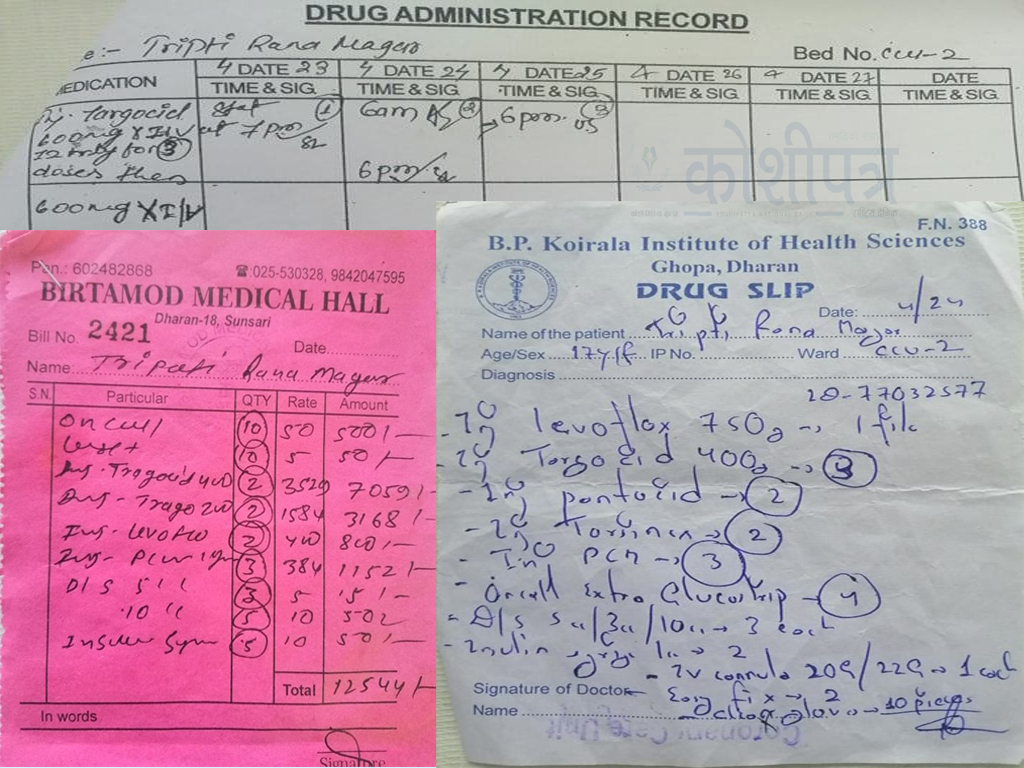 DRUG ADMINISTRATION RECORD
e:- Tripti Rana Mager
Bed No. CCU-2
MEDICATION 4 DATE 23 4 DATE 24 4 DATE 25 4 DATE 26 4 DATE 27 DATE
TIME & SIG. TIME & SIG. TIME & SIG. TIME & SIG. TIME & SIG. TIME & SIG.
Targocid Stat 1 6am 2 6pm 3
600mg X I/V at 7pm
12 hrly for 3
doses then 6pm
600mg X I/V
कोशीपत्र
Pan.: 602482868 ☎ 025-530328, 9842047595
BIRTAMOD MEDICAL HALL
Dharan-18, Sunsari
Bill No. 2421
Date
Name: Tripati Rana Mager
S.N. Particular QTY Rate Amount
On call 10 50 500/-
10 5 50/-
Inj. Tragocid 400 2 3529 7059/-
Inj - Trago 200 2 1584 3168/-
Inj. Levoflo 2 400 800/-
Inj - Pcm 1gm 3 384 1152/-
D/S 5cc 3 5 15/-
10 cc 5 10
Insulin Syrn 5 10 50/-
Total 12544/-
In words
Signature
F.N. 388
B.P. Koirala Institute of Health Sciences
Ghopa, Dharan
DRUG SLIP
Date: 4/24
Name of the patient Tripti Rana Magar
Age/Sex 17y/f IP No. Ward CCU-2
Diagnosis
77032577
levoflox 750g → 1
Targocid 400g → 3
- Inj pantocid → 2
→ 2
- Inj PCM → 3
- Oncall Extra Glucostrip - 4
- D/s 5cc/3cc/10cc → 3 each
- Insulin → 2
- IV cannula 20G/22G → 1 each
Signature of Doctor Easy fix → 2
Name glove → 10 pieces
Coronary Care Unit